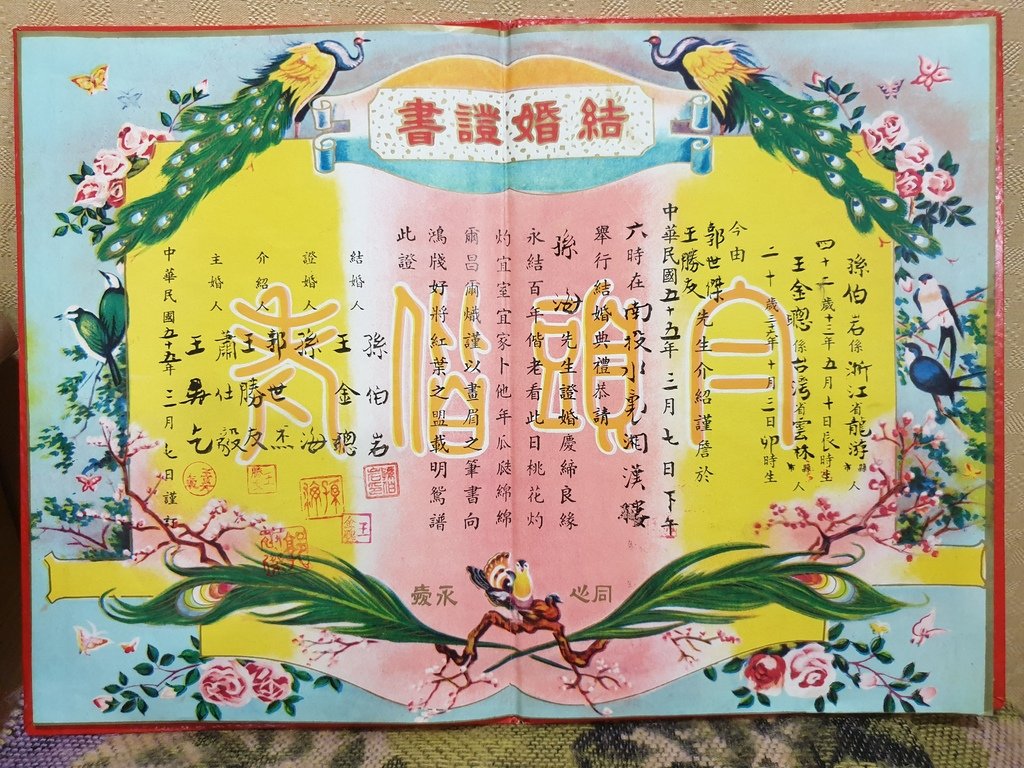 結婚證書
孫伯岩係浙江省龍游縣人
四十二歲十三年五月十日辰時生
王金聰係台灣省雲林縣人
二十歲三五年十月三日卯時生
今由
郭世傑
王勝友先生介紹謹詹於
中華民國五十五年三月七日下午
六時在南投水里湘漢樓
舉行結婚典禮恭請
孫海先生證婚慶締良緣
永結百年偕老看此日桃花灼
灼宜室宜家卜他年瓜瓞綿綿
爾昌爾熾謹以畫眉之筆書向
鴻牋好將紅葉之盟載明鴛譜
此證
結婚人 孫伯岩
王金聰
證婚人 孫海
介紹人 郭世杰
王勝友
主婚人 蕭仕毅
王
中華民國五十五年三月七日謹訂
白頭偕老
同心
永愛